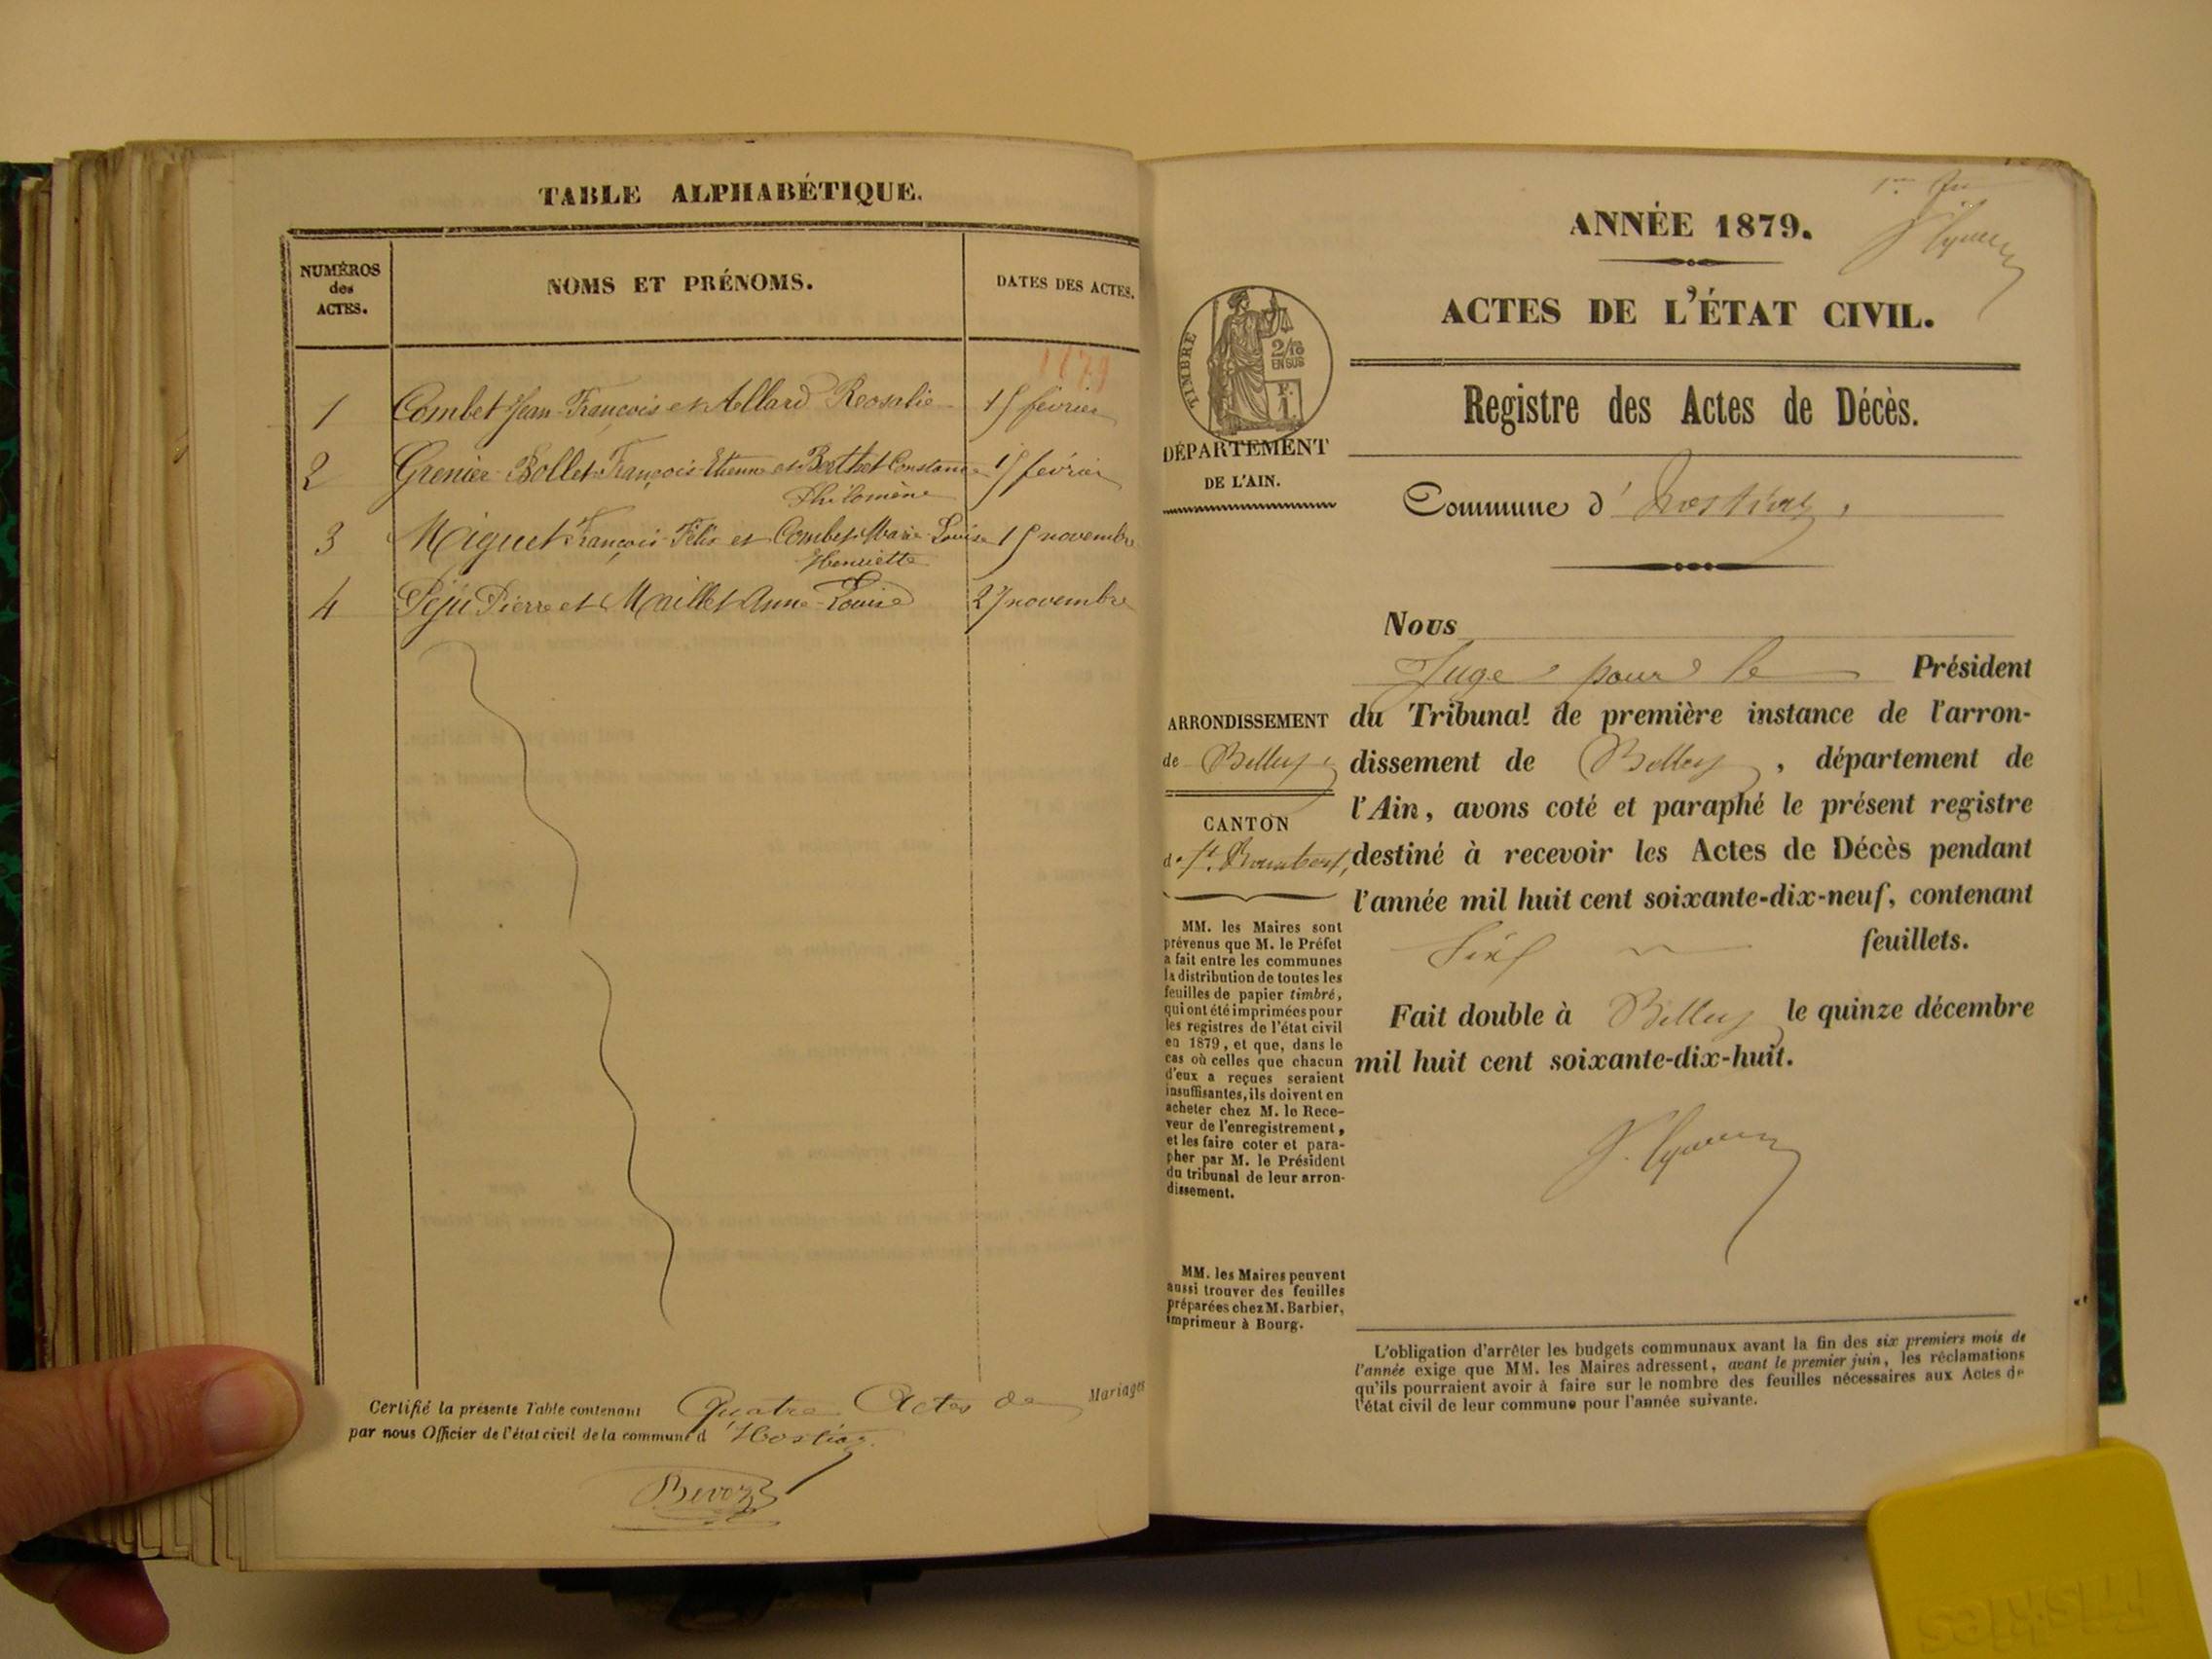 TABLE ALPHABÉTIQUE.
NUMÉROS
des
ACTES.
NOMS ET PRÉNOMS.
DATES DES ACTES.
1879
1 Combet Jean-François et Allard Rosalie 15 février
2 Grenier-Bollet François-Etienne et Berthet Constance 15 février
Philomène
3 Miguet François-Félix et Combet Marie-Louise 15 novembre
Henriette
4 Péju Pierre et Maillet Anne-Louise 27 novembre
Certifié la présente Table contenant Quatre Actes de Mariages
par nous Officier de l'état civil de la commune d'Hostiaz.
ANNÉE 1879.
ACTES DE L'ÉTAT CIVIL.
TIMBRE
2/10
EN SUS
F.
1.
Registre des Actes de Décès.
DÉPARTEMENT
DE L'AIN.
Commune d'Hostiaz,
Nous
Juge pour le Président
du Tribunal de première instance de l'arron-
dissement de Belley, département de
l'Ain, avons coté et paraphé le présent registre
destiné à recevoir les Actes de Décès pendant
l'année mil huit cent soixante-dix-neuf, contenant
Six feuillets.
Fait double à Belley le quinze décembre
mil huit cent soixante-dix-huit.
ARRONDISSEMENT
de Belley
CANTON
de St. Rambert,
MM. les Maires sont
prévenus que M. le Préfet
a fait entre les communes
la distribution de toutes les
feuilles de papier timbré,
qui ont été imprimées pour
les registres de l'état civil
en 1879, et que, dans le
cas où celles que chacun
d'eux a reçues seraient
insuffisantes, ils doivent en
acheter chez M. le Rece-
veur de l'enregistrement,
et les faire coter et para-
pher par M. le Président
du tribunal de leur arron-
dissement.
MM. les Maires peuvent
aussi trouver des feuilles
préparées chez M. Barbier,
imprimeur à Bourg.
L'obligation d'arrêter les budgets communaux avant la fin des six premiers mois de
l'année exige que MM. les Maires adressent, avant le premier juin, les réclamations
qu'ils pourraient avoir à faire sur le nombre des feuilles nécessaires aux Actes de
l'état civil de leur commune pour l'année suivante.